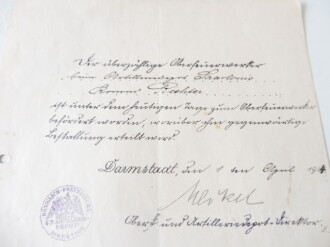 Der überzählige Oberfeuerwerker
beim Artilleriedepot
ist unter dem heutigen Tage zum Oberfeuerwerker
befördert worden, worüber ihm gegenwärtige
Bestallung erteilt wird.
Darmstadt, den 1 ten April
Oberst und Artilleriedepot-Direktor